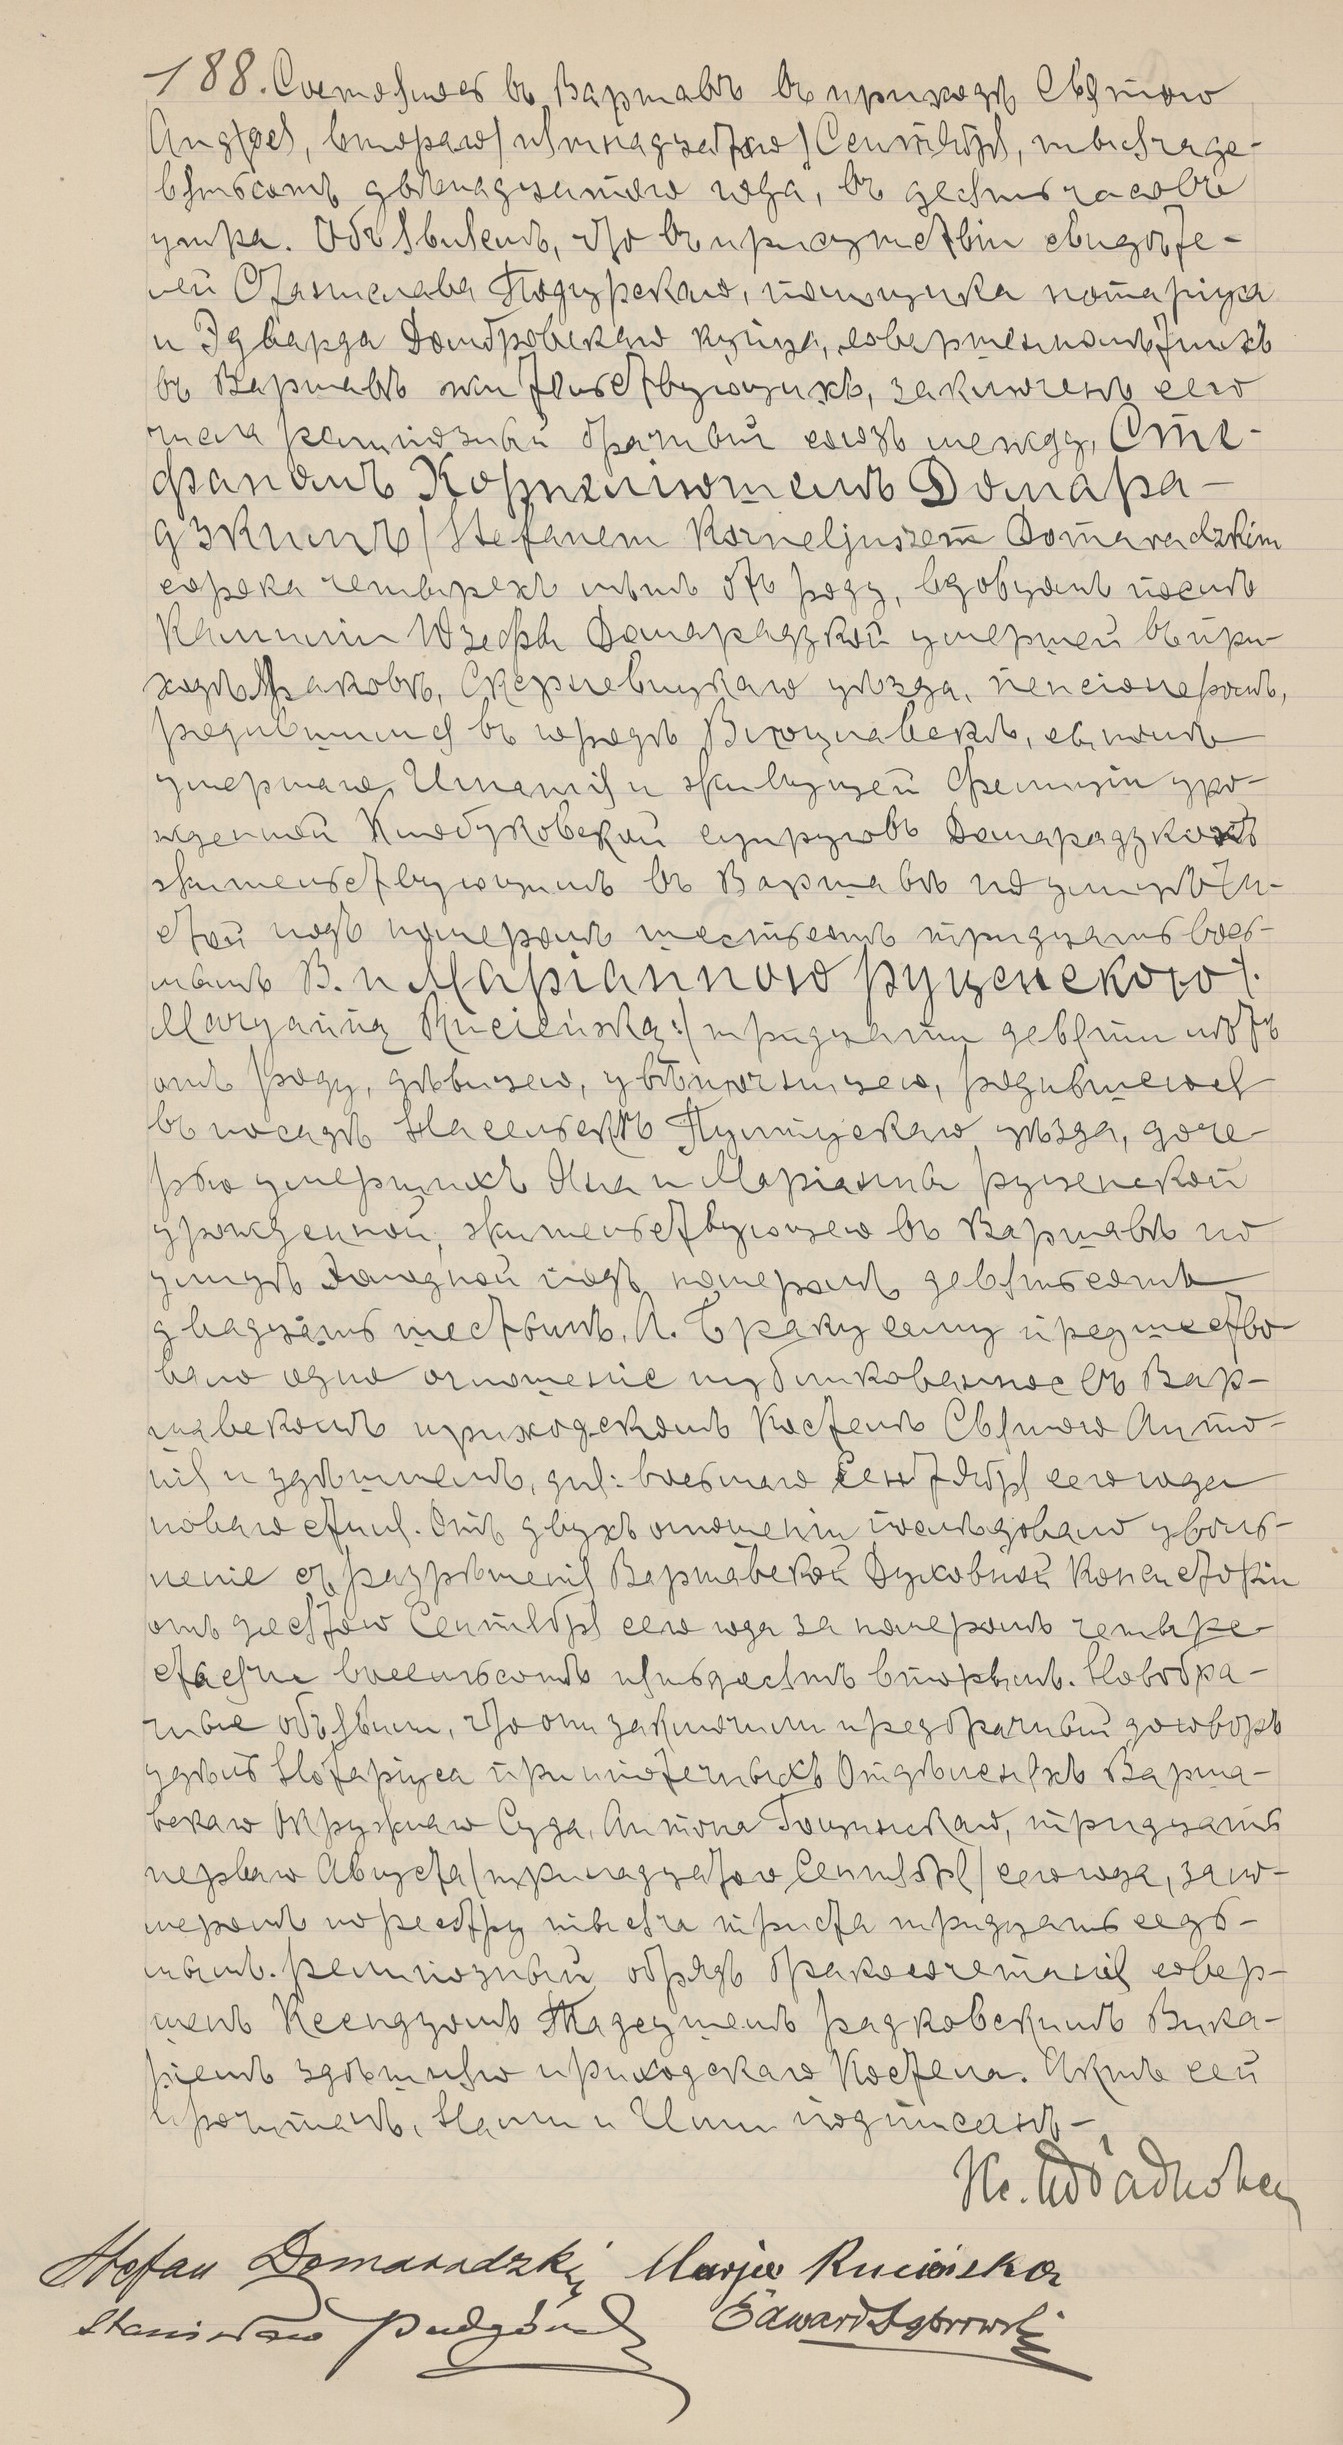 188. Состоялось въ Варшавѣ въ приходѣ Святого
Андрея, второго/пятнадцатого/Сентября, тысяча де-
вятьсотъ двѣнадцатого года, въ десять часовъ
утра. Объявляемъ, что въ присутствіи свидѣте-
лей Станислава Подгурскаго, помощника нотаріуса
и Эдварда Домбровскаго купца, совершеннолѣтнихъ
въ Варшавѣ жительствующихъ, заключенъ сего
числа религіозный брачный союзъ между, Сте-
фаномъ Корнеліюшемъ Домара-
дзкимъ/Stefanem Korneljuszem Domaradzkim
сорока четырехъ лѣтъ отъ роду, вдовцомъ послѣ
Камилли Юзефы Домарадзкой умершей въ при-
ходѣ Скерневицкаго уѣзда, пенсіонеромъ,
родившимся въ городѣ Влоцлавскѣ, сыномъ
умершаго Игнатія и живущей Фелиціи уро-
жденной Клобуковской супруговъ Домарадзкихъ
жительствующимъ въ Варшавѣ по улицѣ Чи-
стой подъ номеромъ шестьсотъ тридцать вось-
мымъ В. и Маріанною Руценскою/:
Maryanną Rucieńską:/ тридцати девяти лѣтъ
отъ роду, дѣвицею, родившеюся
въ посадѣ Насельскѣ Пултускаго уѣзда, доче-
рью умершихъ Яна и Маріанны Руценской
урожденной, жительствующею въ Варшавѣ по
улицѣ подъ номеромъ девятьсотъ
двадцать шестымъ, А. Браку сему предшество-
вало одно оглашеніе публикованное въ Вар-
шавскомъ приходскомъ Костелѣ Святого Анто-
нія и здѣшнемъ, дня: восьмаго Сентября сего года
новаго стиля. Отъ двухъ оглашеній послѣдовало уволь-
неніе съ разрѣшенія Варшавской Духовной Консисторіи
отъ десятаго Сентября сего года за номеромъ четыре
тысячи восемьсотъ пятьдесятъ вторымъ. Новобра-
чные объявили, что они заключили предбрачный договоръ
удѣлъ Нотаріуса при ипотечныхъ Отдѣленіяхъ Варша-
вскаго Окружнаго Суда, Антона тридцать
перваго Августа/тринадцатаго Сентября/сего года, за но-
меромъ по реестру тысяча триста тридцать седь-
мымъ. Религіозный обрядъ бракосочетанія совер-
шенъ Ксендзомъ Тадеушемъ Радковскимъ Вика-
ріемъ здѣшняго приходскаго Костела. Актъ сей
прочитанъ, Нами и Ими подписанъ.—
Stefan Domaradzki Marja Rucińska
Stanisław Podgórski Edward Dąbrowski